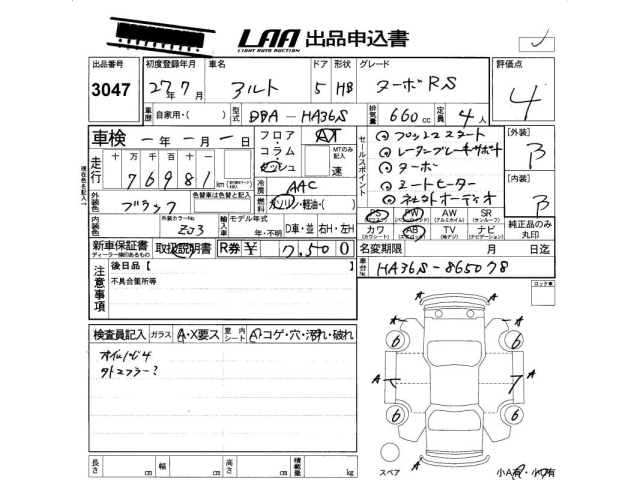 LAA 出品申込書
LIGHT AUTO AUCTION
出品番号 初度登録年月 車名 ドア 形状 グレード 評価点
3047 27年 7月 アルト 5 HB ターボRS 4
車歴 自家用・( ) 型式 DBA-HA36S 排気量 660 cc 定員 4人
車検 ー年ー月ー日 フロア・コラム・ダッシュ AT セールスポイント プッシュスタート 【外装】 B
走行 十万千百十一 MTのみ記入 速 レーダーブレーキサポート
76981 km ターボ
冷房 AAC シートヒーター 【内装】 B
外装色 ブラック 色替車は色替と記入 燃料 ガソリン・軽油・( ) 社外オーディオ
内装色 外装カラーNo. ZJ3 輸入車 モデル年式 年・不明 D車・並 右H・左H
PS PW AW SR
(パワステ) (アルミホイル) (サンルーフ)
カワ AB TV ナビ 純正品のみ丸印
(カワシート) (エアバッグ) (地デジ) (ナビゲーション)
新車保証書 取扱説明書 R券 ¥ 7,500 名変期限 月 日迄
ディーラー捺印あるもの
車台No. HA36S-865078
注意事項 後日品【
不具合箇所等
ロック車
検査員記入 ガラス A・X要ス 室内シート A・コゲ・穴・汚れ・破れ
A A
6 6
A A
6 6
A
長さ cm 幅 cm 高さ cm 積載量 kg
スペア
小A有・小ワ有